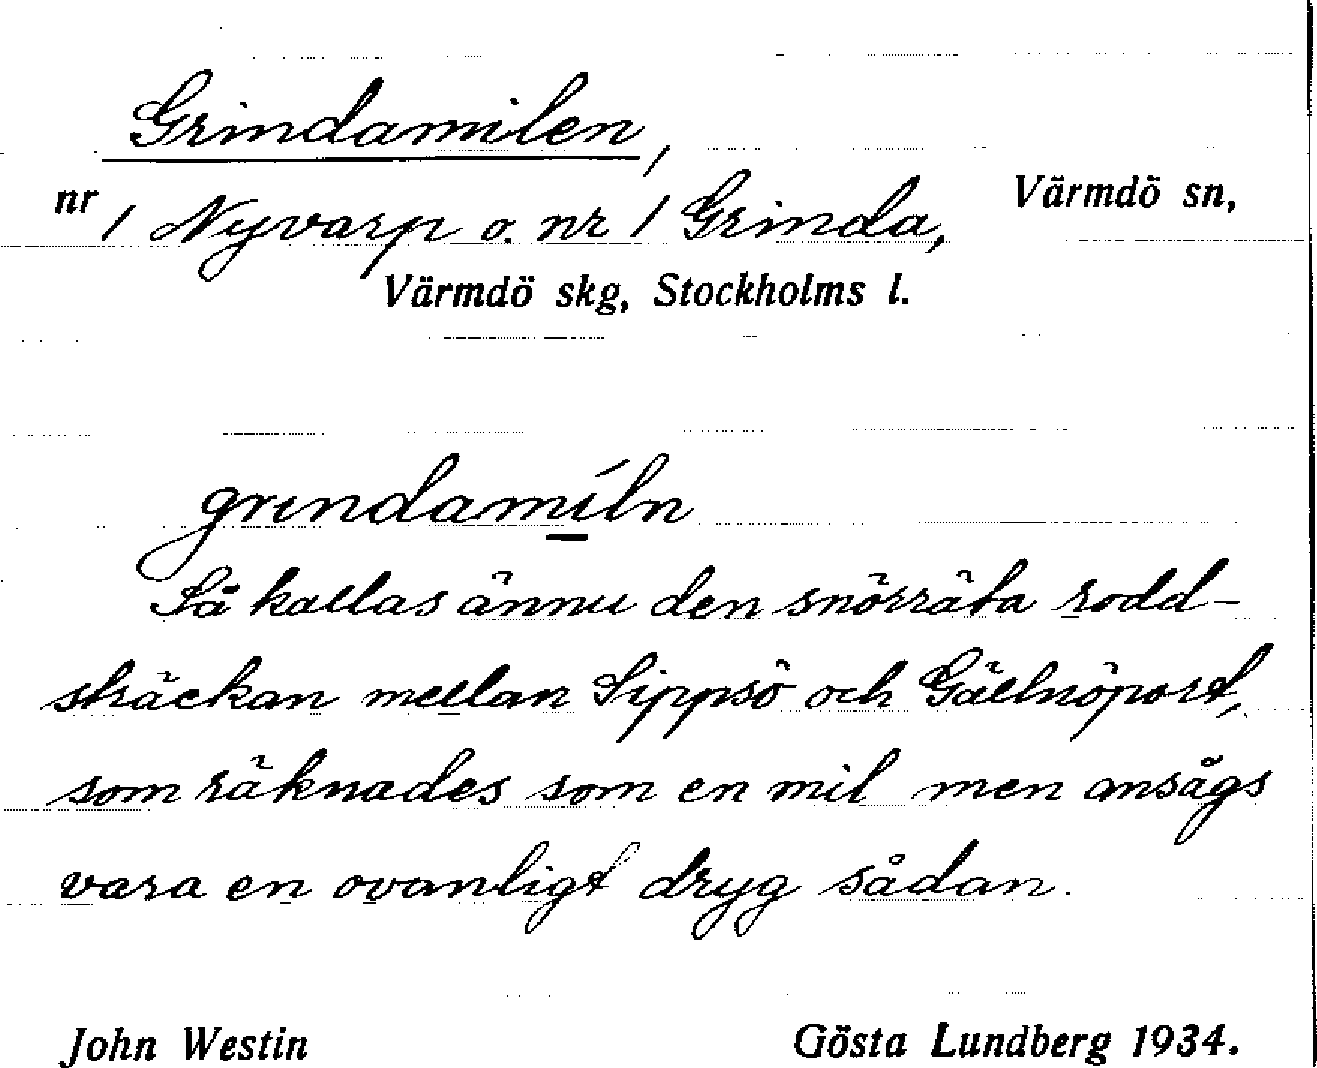 Grindamilen,
nr 1 Nyvarp o. nr 1 Grinda, Värmdö sn,
Värmdö skg, Stockholms l.
grındamíln
Så kallas ännu den snörräta rodd-
sträckan mellan Sippsö och Gällnöport,
som räknades som en mil men ansågs
vara en ovanligt dryg sådan.
John Westin Gösta Lundberg 1934.